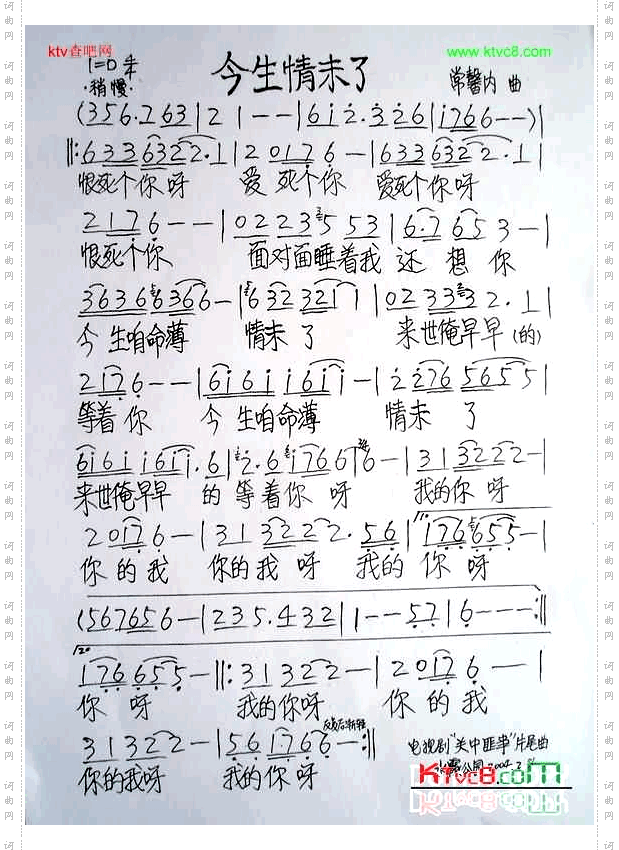 ktv查吧网
www.ktvc8.com
今生情未了
1=D
稍慢
常馨内 曲
(356.763|21--|612.326|1766--)|
||:6336322.1|20176-|6336322.1|
恨死个你呀 爱死个你 爱死个你呀
2176--|02235 53|6.7653-|
恨死个你 面对面睡着我还想你
363663666-|632321 1|0233332.1|
今生咱命薄 情未了 来世俺早早(的)
2176--|6161 1611-|2276 5655|
等着你 今生咱命薄 情未了
6161 1611.6|2.6 1766|6-|313222-|
来世俺早早 的等着你呀 我的你呀
20176-|313222.56|176655-|
你的我 你的我呀 我的你呀
(567656-|235.432|1--57|6---:||
176655-||:31322-|20176-|
你呀 我的你呀 你的我
31322-|561766-:||
反复后渐轻
你的我呀 我的你呀
电视剧"关中匪事"片尾曲
KTvc8.com
词曲网